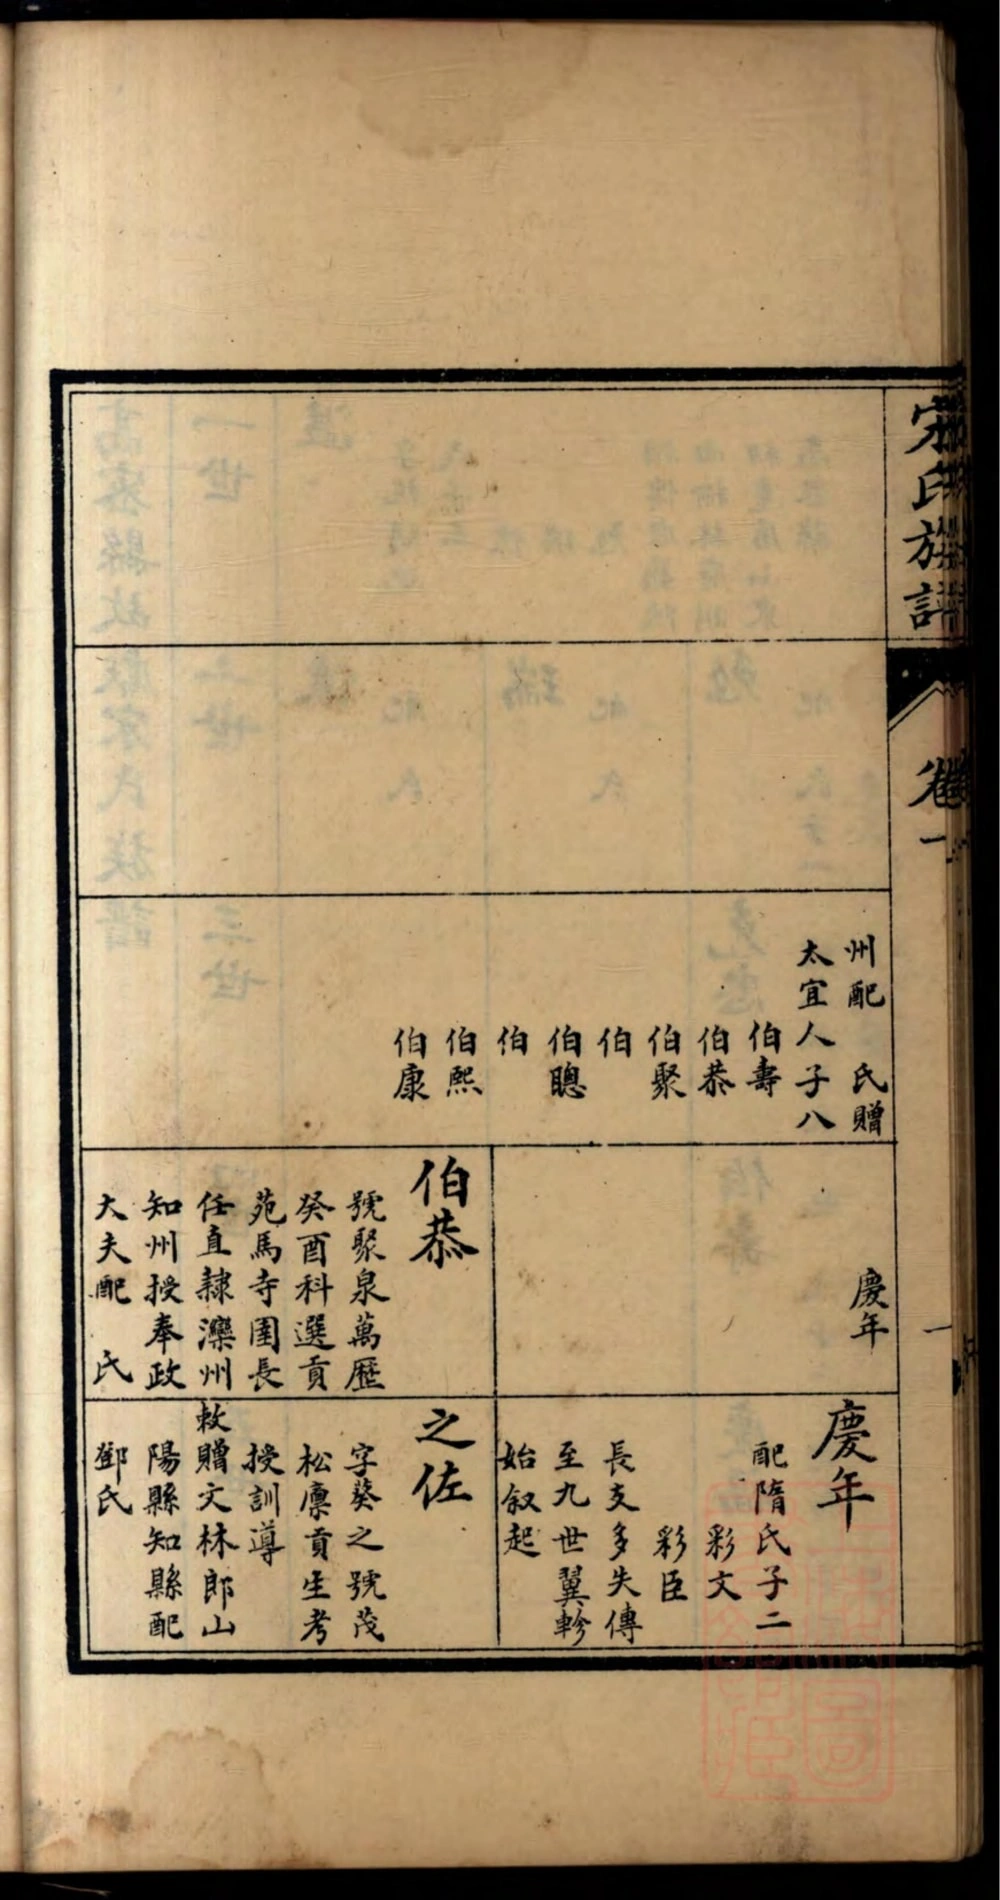 宗氏族譜
卷一
一
州配　氏贈
太宜人子八
伯壽
伯恭
伯聚
伯
伯聰
伯
伯熙
伯康
慶年
伯恭
號聚泉萬歷
癸酉科選貢
苑馬寺圉長
任直隸灤州
知州授奉政
大夫配　氏
慶年
配隋氏子二
彩文
彩臣
長支多失傳
至九世翼軫
始叙起
之佐
字葵之號茂
松廪貢生考
授訓導
敕贈文林郎山
陽縣知縣配
鄧氏